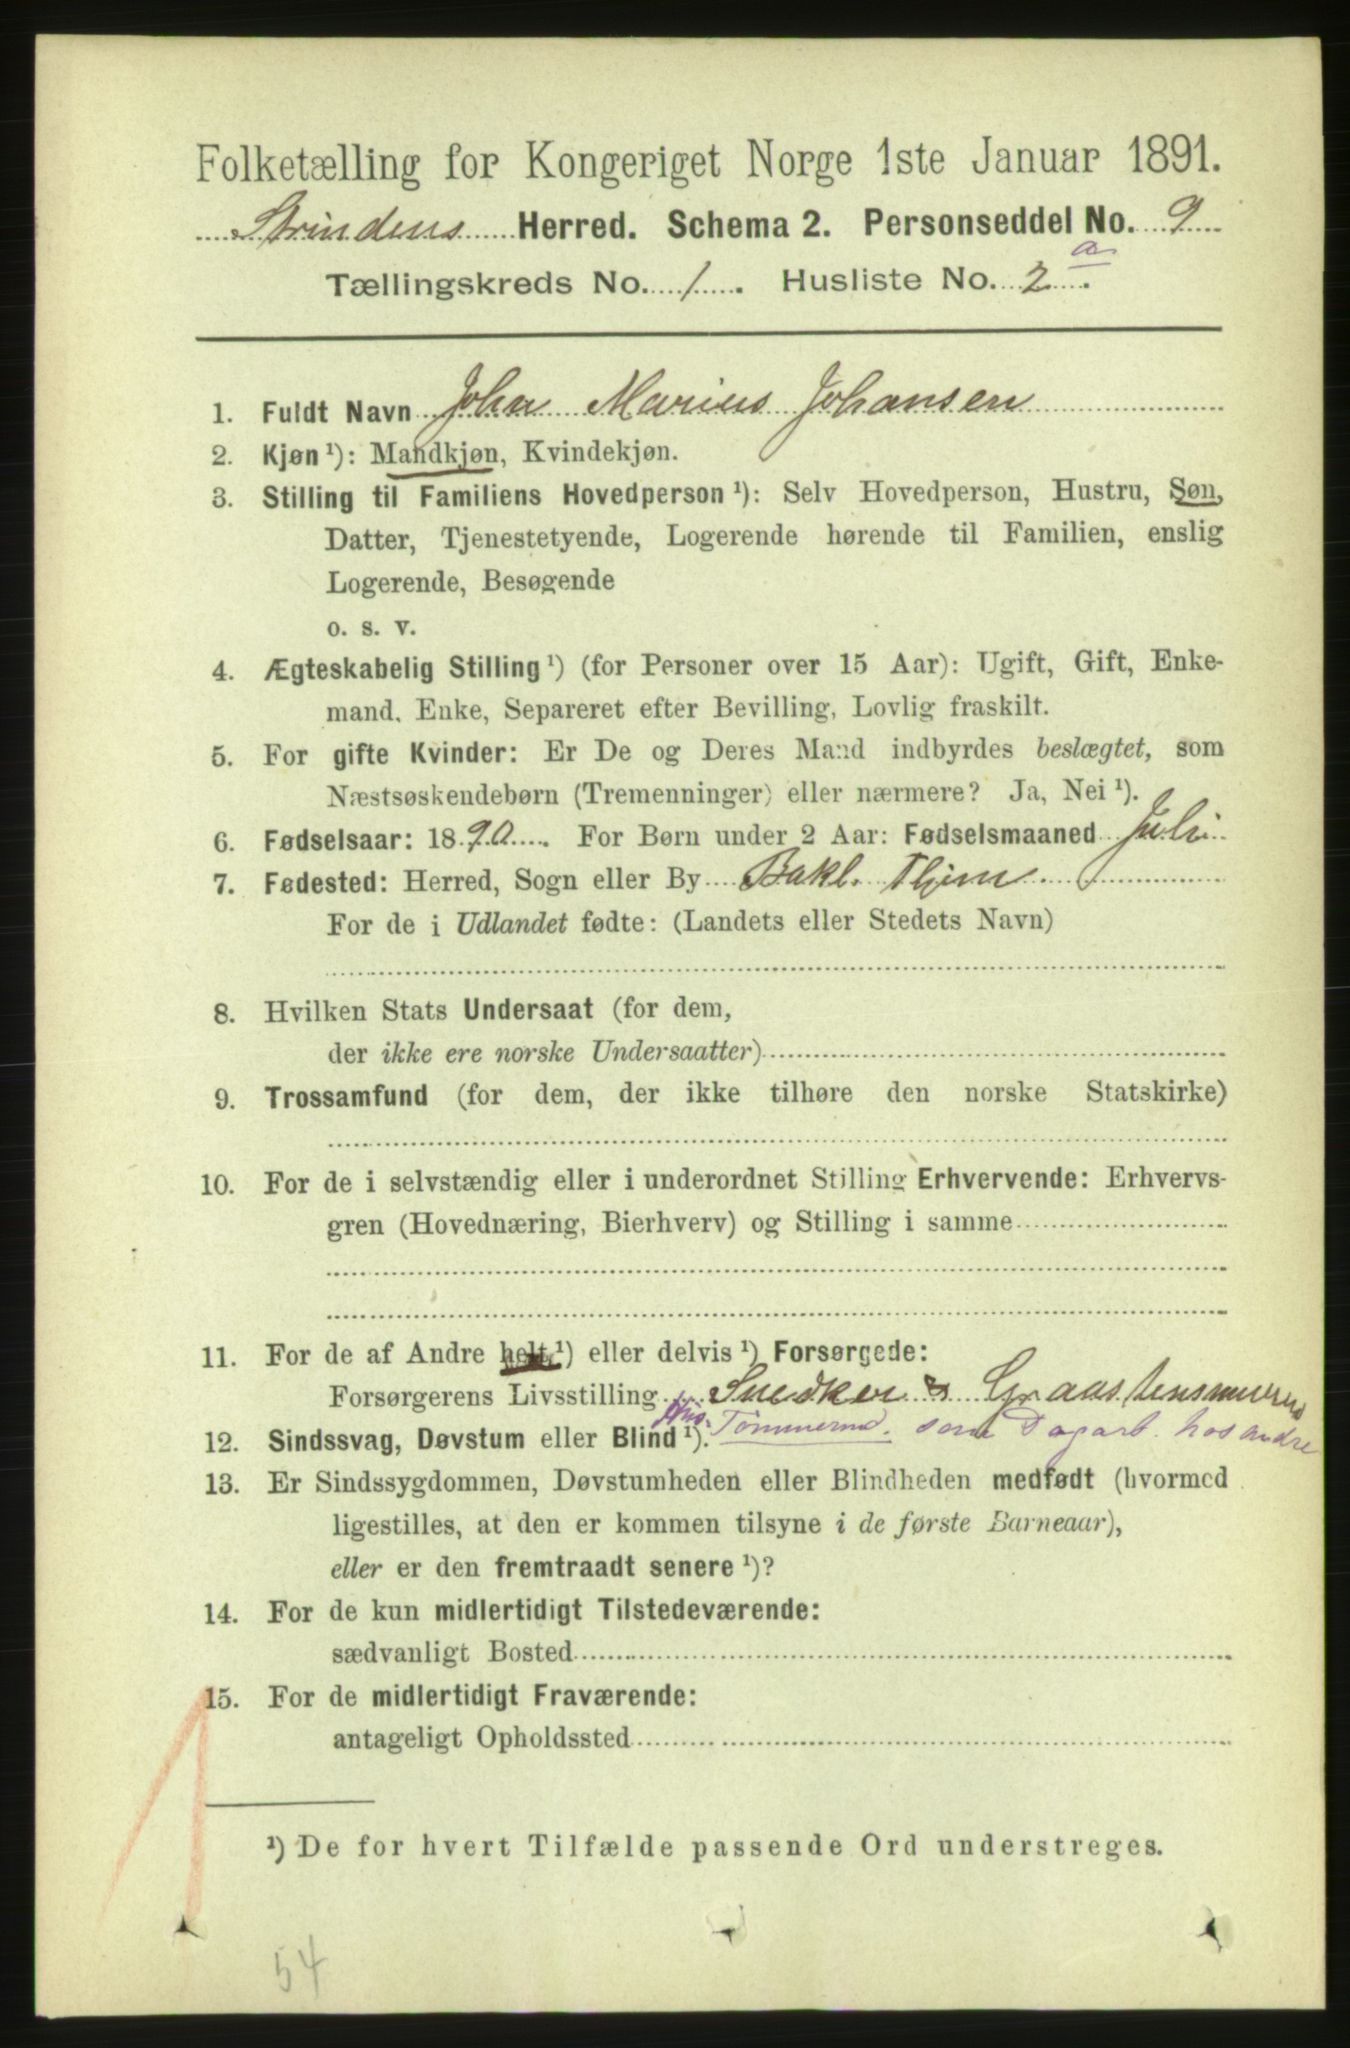 Folketælling for Kongeriget Norge 1ste Januar 1891.
Strindens Herred. Schema 2. Personseddel No. 9
Tællingskreds No. 1. Husliste No. 2 a.
1. Fuldt Navn John Marius Johansen
2. Kjøn ¹): Mandkjøn, Kvindekjøn.
3. Stilling til Familiens Hovedperson ¹): Selv Hovedperson, Hustru, Søn,
Datter, Tjenestetyende, Logerende hørende til Familien, enslig
Logerende, Besøgende
o. s. v.
4. Ægteskabelig Stilling ¹) (for Personer over 15 Aar): Ugift, Gift, Enke-
mand, Enke, Separeret efter Bevilling, Lovlig fraskilt.
5. For gifte Kvinder: Er De og Deres Mand indbyrdes beslægtet, som
Næstsøskendebørn (Tremenninger) eller nærmere? Ja, Nei ¹).
6. Fødselsaar: 1890. For Børn under 2 Aar: Fødselsmaaned Juli
7. Fødested: Herred, Sogn eller By Bakl. Thjem
For de i Udlandet fødte: (Landets eller Stedets Navn)
8. Hvilken Stats Undersaat (for dem,
der ikke ere norske Undersaatter)
9. Trossamfund (for dem, der ikke tilhøre den norske Statskirke)
10. For de i selvstændig eller i underordnet Stilling Erhvervende: Erhvervs-
gren (Hovednæring, Bierhverv) og Stilling i samme
11. For de af Andre helt ¹) eller delvis ¹) Forsørgede:
Forsørgerens Livsstilling Snedker & Graastensmurer
12. Sindssvag, Døvstum eller Blind ¹). Tømmermd. som Dagarb. hos andre
13. Er Sindssygdommen, Døvstumheden eller Blindheden medfødt (hvormed
ligestilles, at den er kommen tilsyne i de første Barneaar),
eller er den fremtraadt senere ¹)?
14. For de kun midlertidigt Tilstedeværende:
sædvanligt Bosted
15. For de midlertidigt Fraværende:
antageligt Opholdssted
¹) De for hvert Tilfælde passende Ord understreges.
1
54